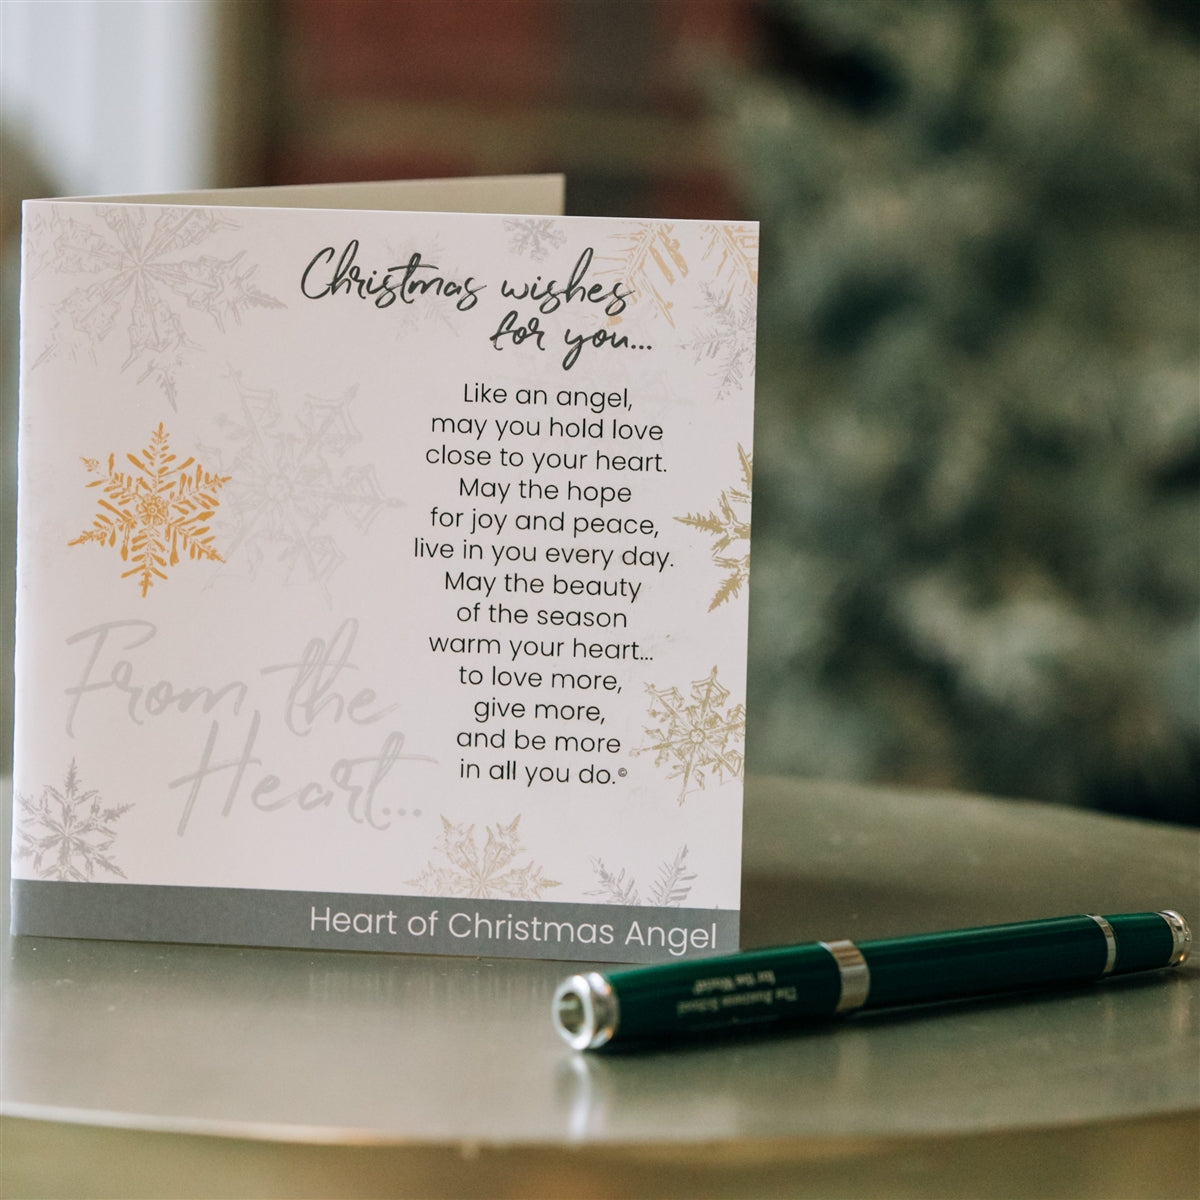 Christmas wishes
for you...
Like an angel,
may you hold love
close to your heart.
May the hope
for joy and peace,
live in you every day.
May the beauty
of the season
warm your heart...
to love more,
give more,
and be more
in all you do.©
From the
Heart...
Heart of Christmas Angel
The Business School
for the World®